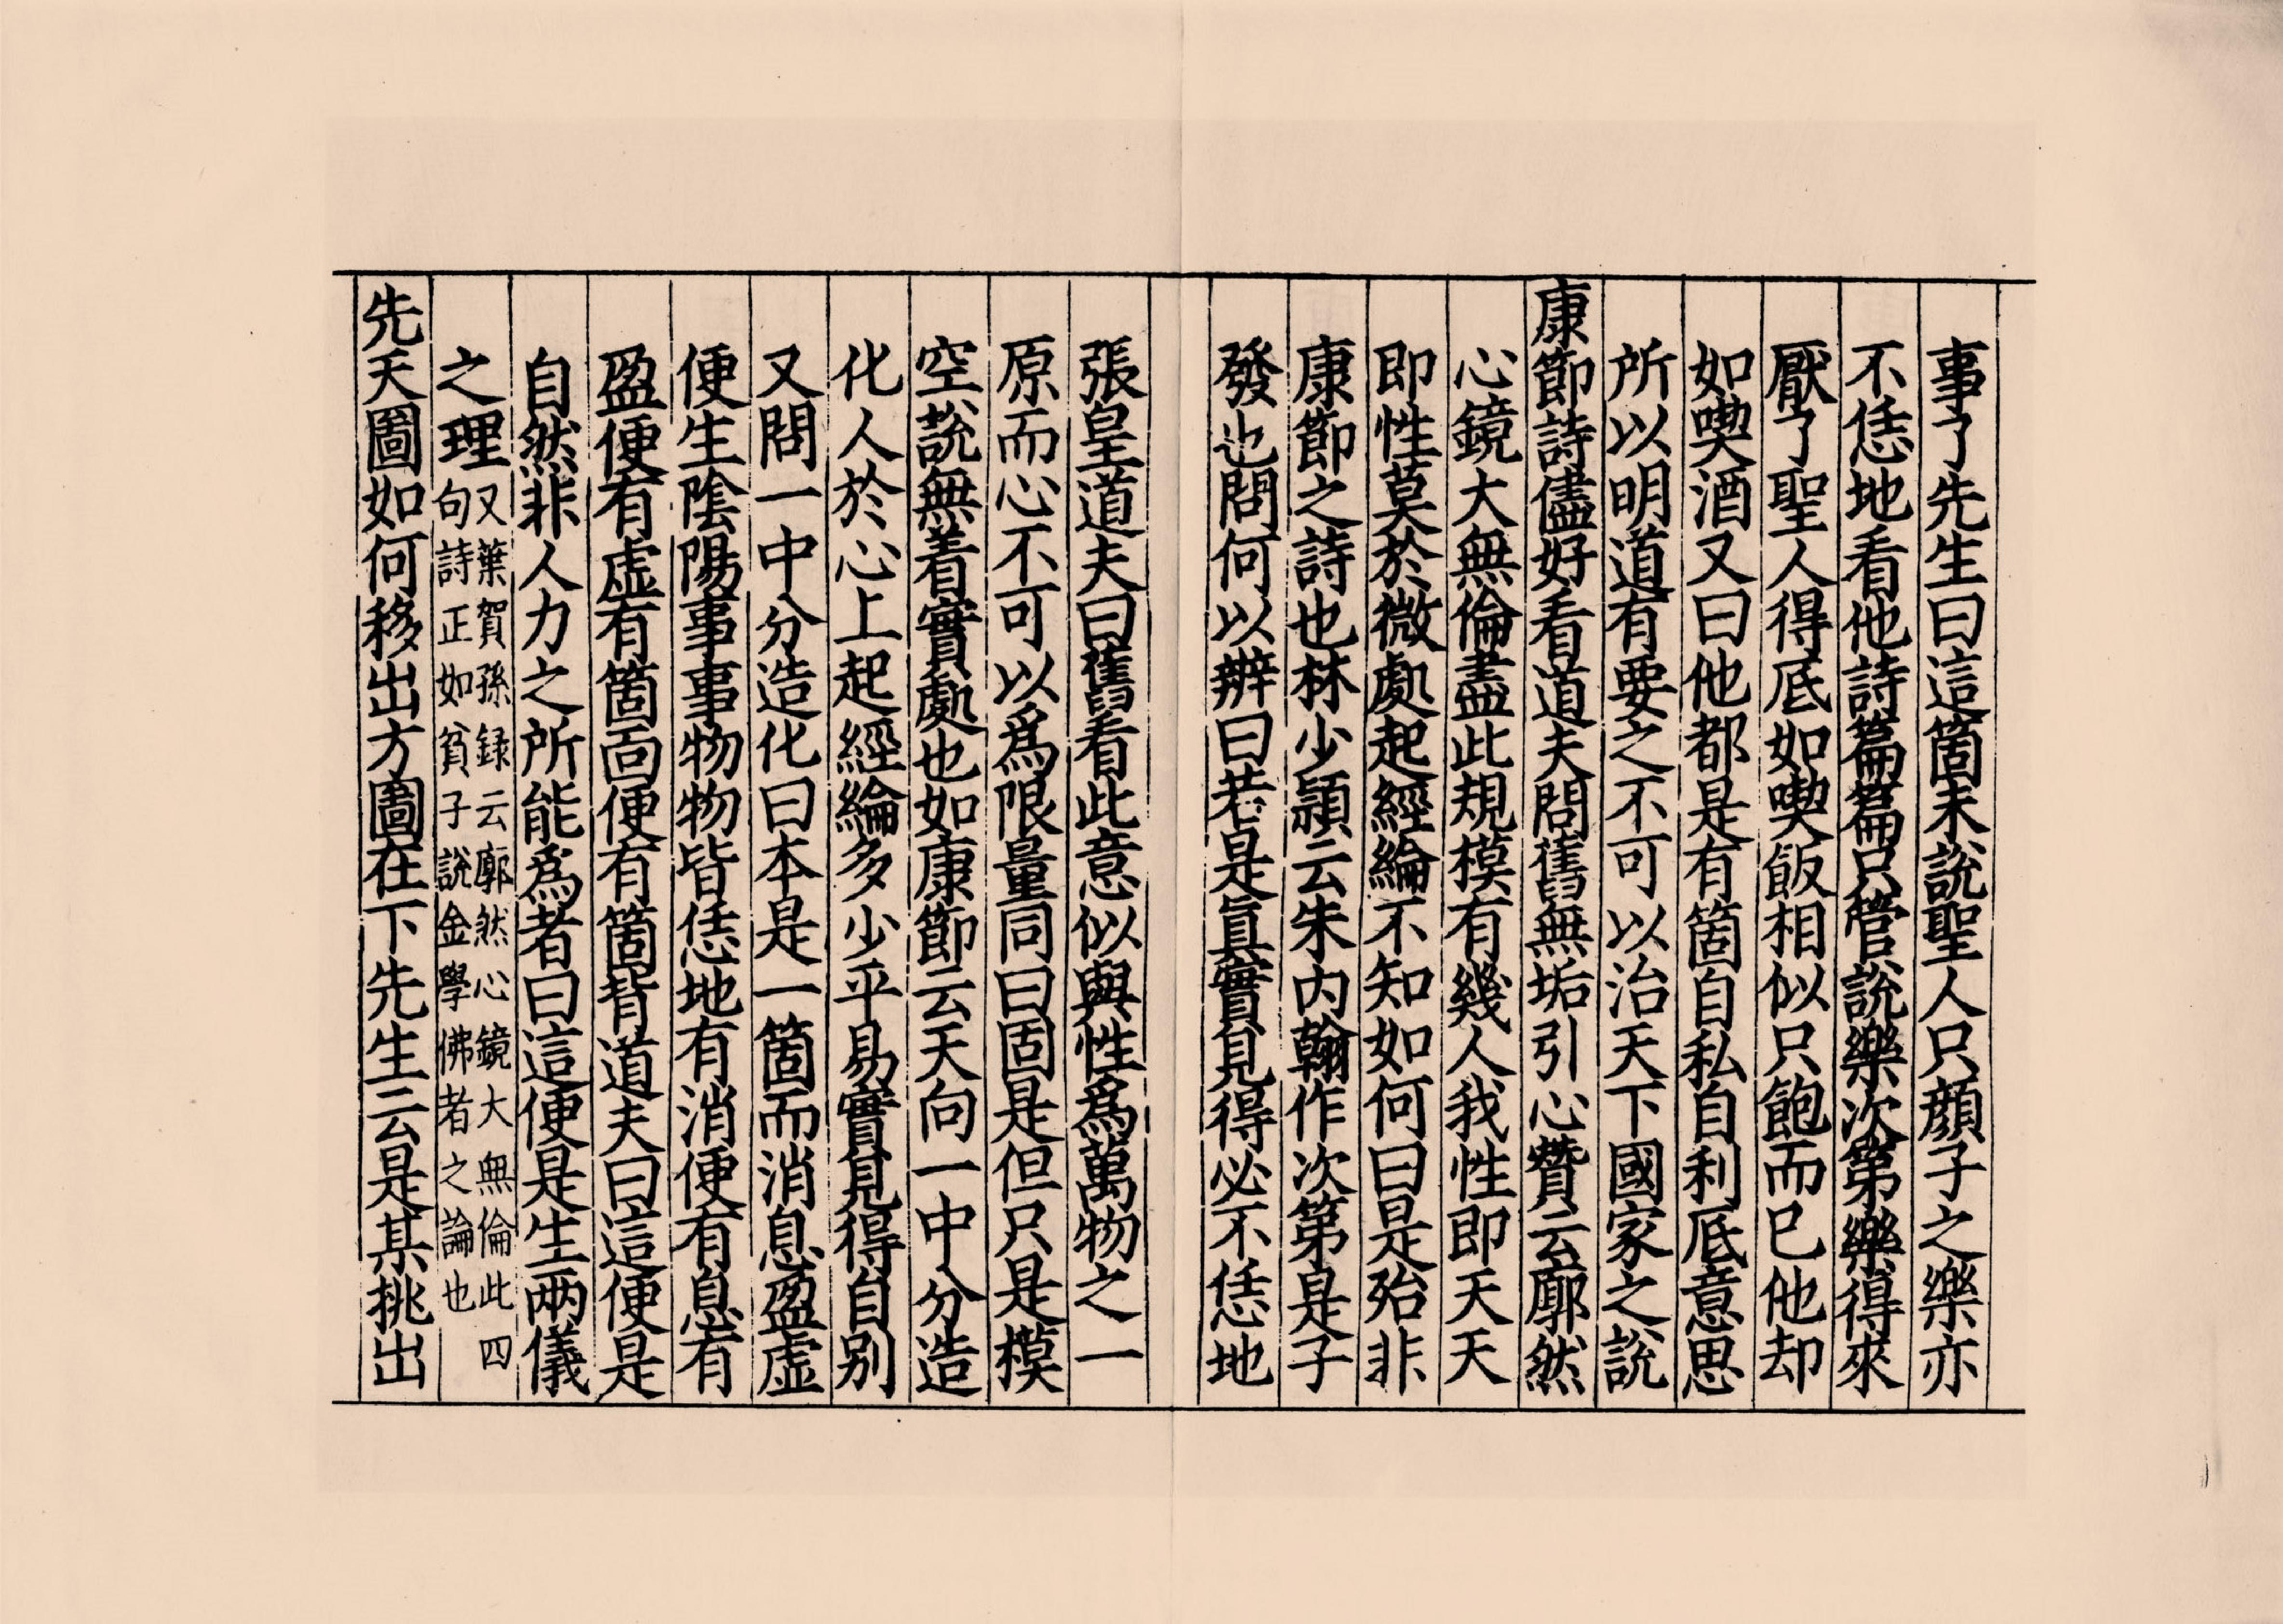 事了先生曰這箇未說聖人只顔子之樂亦
不恁地看他詩篇篇只管說樂次第樂得來
厭了聖人得底如喫飯相似只飽而已他却
如喫酒又曰他都是有箇自私自利底意思
所以明道有要之不可以治天下國家之說
康節詩儘好看道夫問舊無垢引心贊云廓然
心鏡大無倫盡此規模有幾人我性即天天
即性莫於微處起經綸不知如何曰是殆非
康節之詩也林少頴云朱内翰作次第是子
發也問何以辨曰若是真實見得必不恁地
張皇道夫曰舊看此意似與性爲萬物之一
原而心不可以爲限量同曰固是但只是模
空說無着實處也如康節云天向一中分造
化人於心上起經綸多少平易實見得自别
又問一中分造化曰本是一箇而消息盈虛
便生陰陽事事物物皆恁地有消便有息有
盈便有虛有箇面便有箇背道夫曰這便是
自然非人力之所能爲者曰這便是生兩儀
之理又葉賀孫録云廓然心鏡大無倫此四
句詩正如貧子說金學佛者之論也
先天圖如何移出方圖在下先生云是某挑出